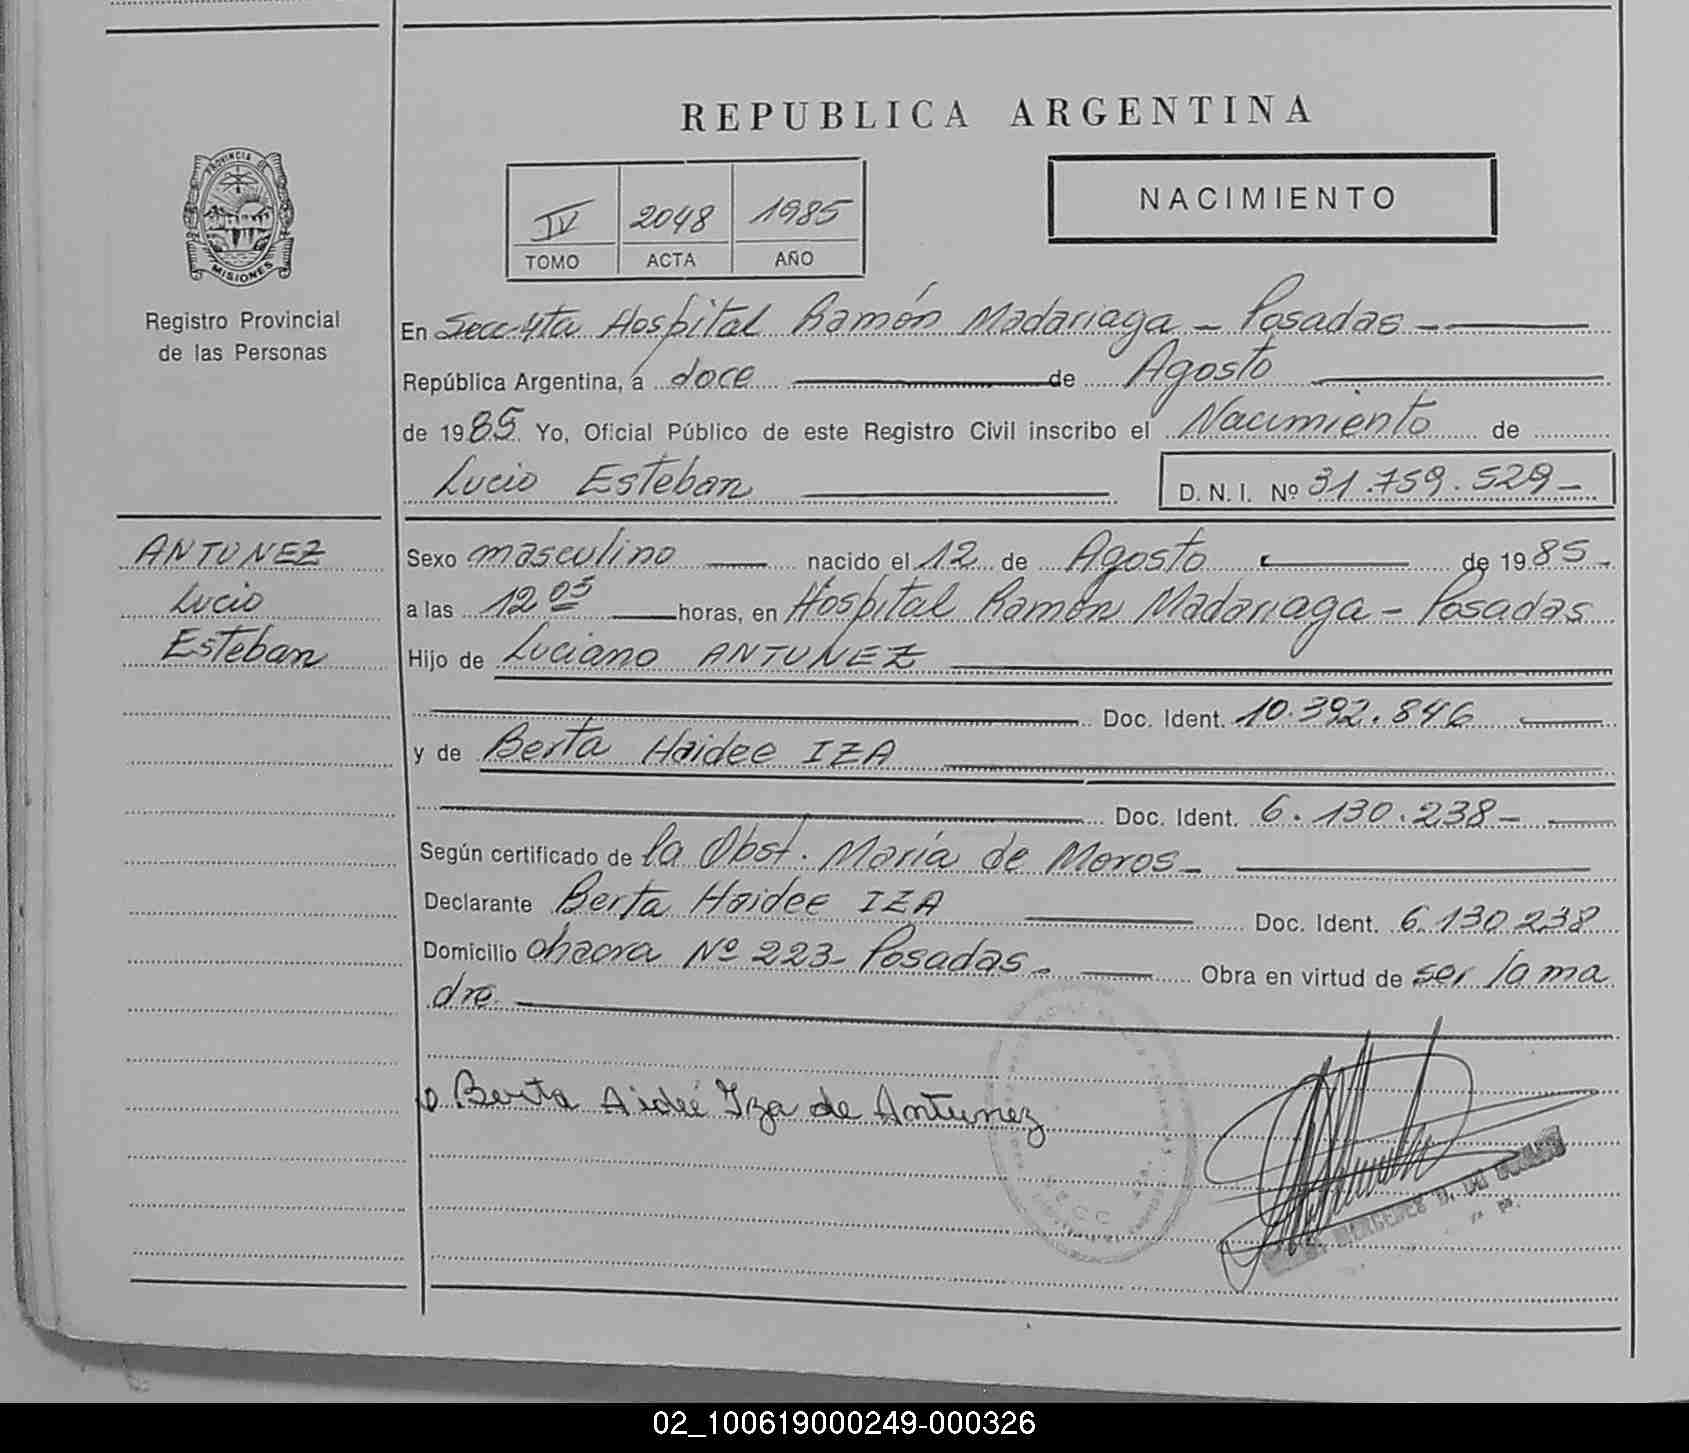 REPUBLICA ARGENTINA
PROVINCIA DE
MISIONES
Registro Provincial
de las Personas
IV 2048 1985
TOMO ACTA AÑO
NACIMIENTO
En Secc. 4ta Hospital Ramón Madariaga - Posadas -
República Argentina, a doce de Agosto
de 1985. Yo, Oficial Público de este Registro Civil inscribo el Nacimiento de
Lucio Esteban D. N. I. Nº 31.759.529-
ANTUNEZ
Lucio
Esteban
Sexo masculino nacido el 12 de Agosto de 1985-
a las 12 05 horas, en Hospital Ramón Madariaga - Posadas
Hijo de Luciano ANTUNEZ
Doc. Ident. 10.392.846
y de Berta Haidee IZA
Doc. Ident. 6.130.238-
Según certificado de la Obst. María de Moros-
Declarante Berta Haidee IZA Doc. Ident. 6.130.238
Domicilio chacra Nº 223- Posadas- Obra en virtud de ser la ma
dre.
Berta Aideé Iza de Antunez
02_100619000249-000326